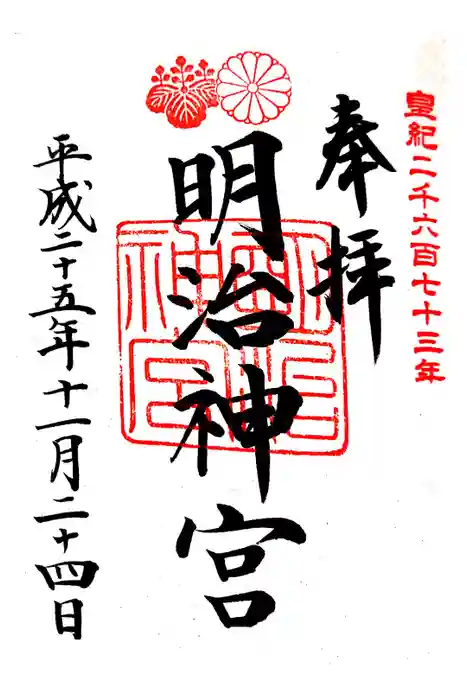 皇紀二千六百七十三年
奉拝
明治神宮
平成二十五年十一月二十四日